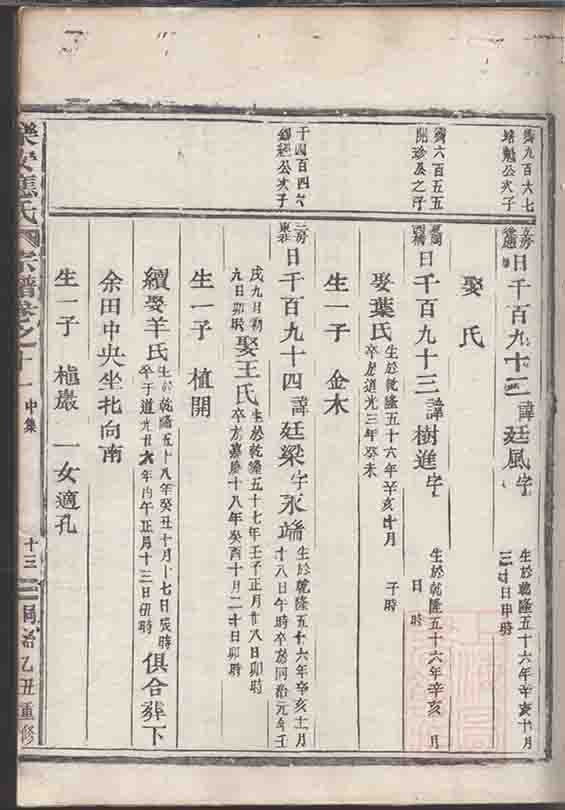 齊九百六七
培魁公次子
日千百九十二 諱廷風 字
生於乾隆五十六年辛亥十月
日申時
娶 氏
齊六百五五
開珍及之子
日千百九十三 諱樹進 字
生於乾隆五十六年辛亥 月
日 時
娶葉氏
生於乾隆五十六年辛亥十月 子時
卒於道光三年癸未
生一子 金木
千四百四六
錦經公次子
三房
日千百九十四 諱廷梁 字永端
生於乾隆五十六年辛亥十一月
十八日午時卒於同治元年壬
戌九日初
九日卯時 娶王氏
生於乾隆五十七年壬子正月廿八日卯時
卒於嘉慶十八年癸酉十月二十日卯時
生一子 植開
續娶羊氏
生於乾隆五十八年癸丑十月十七日亥時
卒于道光廿六年丙午正月十三日丑時
俱合葬下
余田中央坐北向南
生一子 植巖 一女適孔
樂安蔣氏宗譜卷之十一 中集
十三
同治乙丑重修